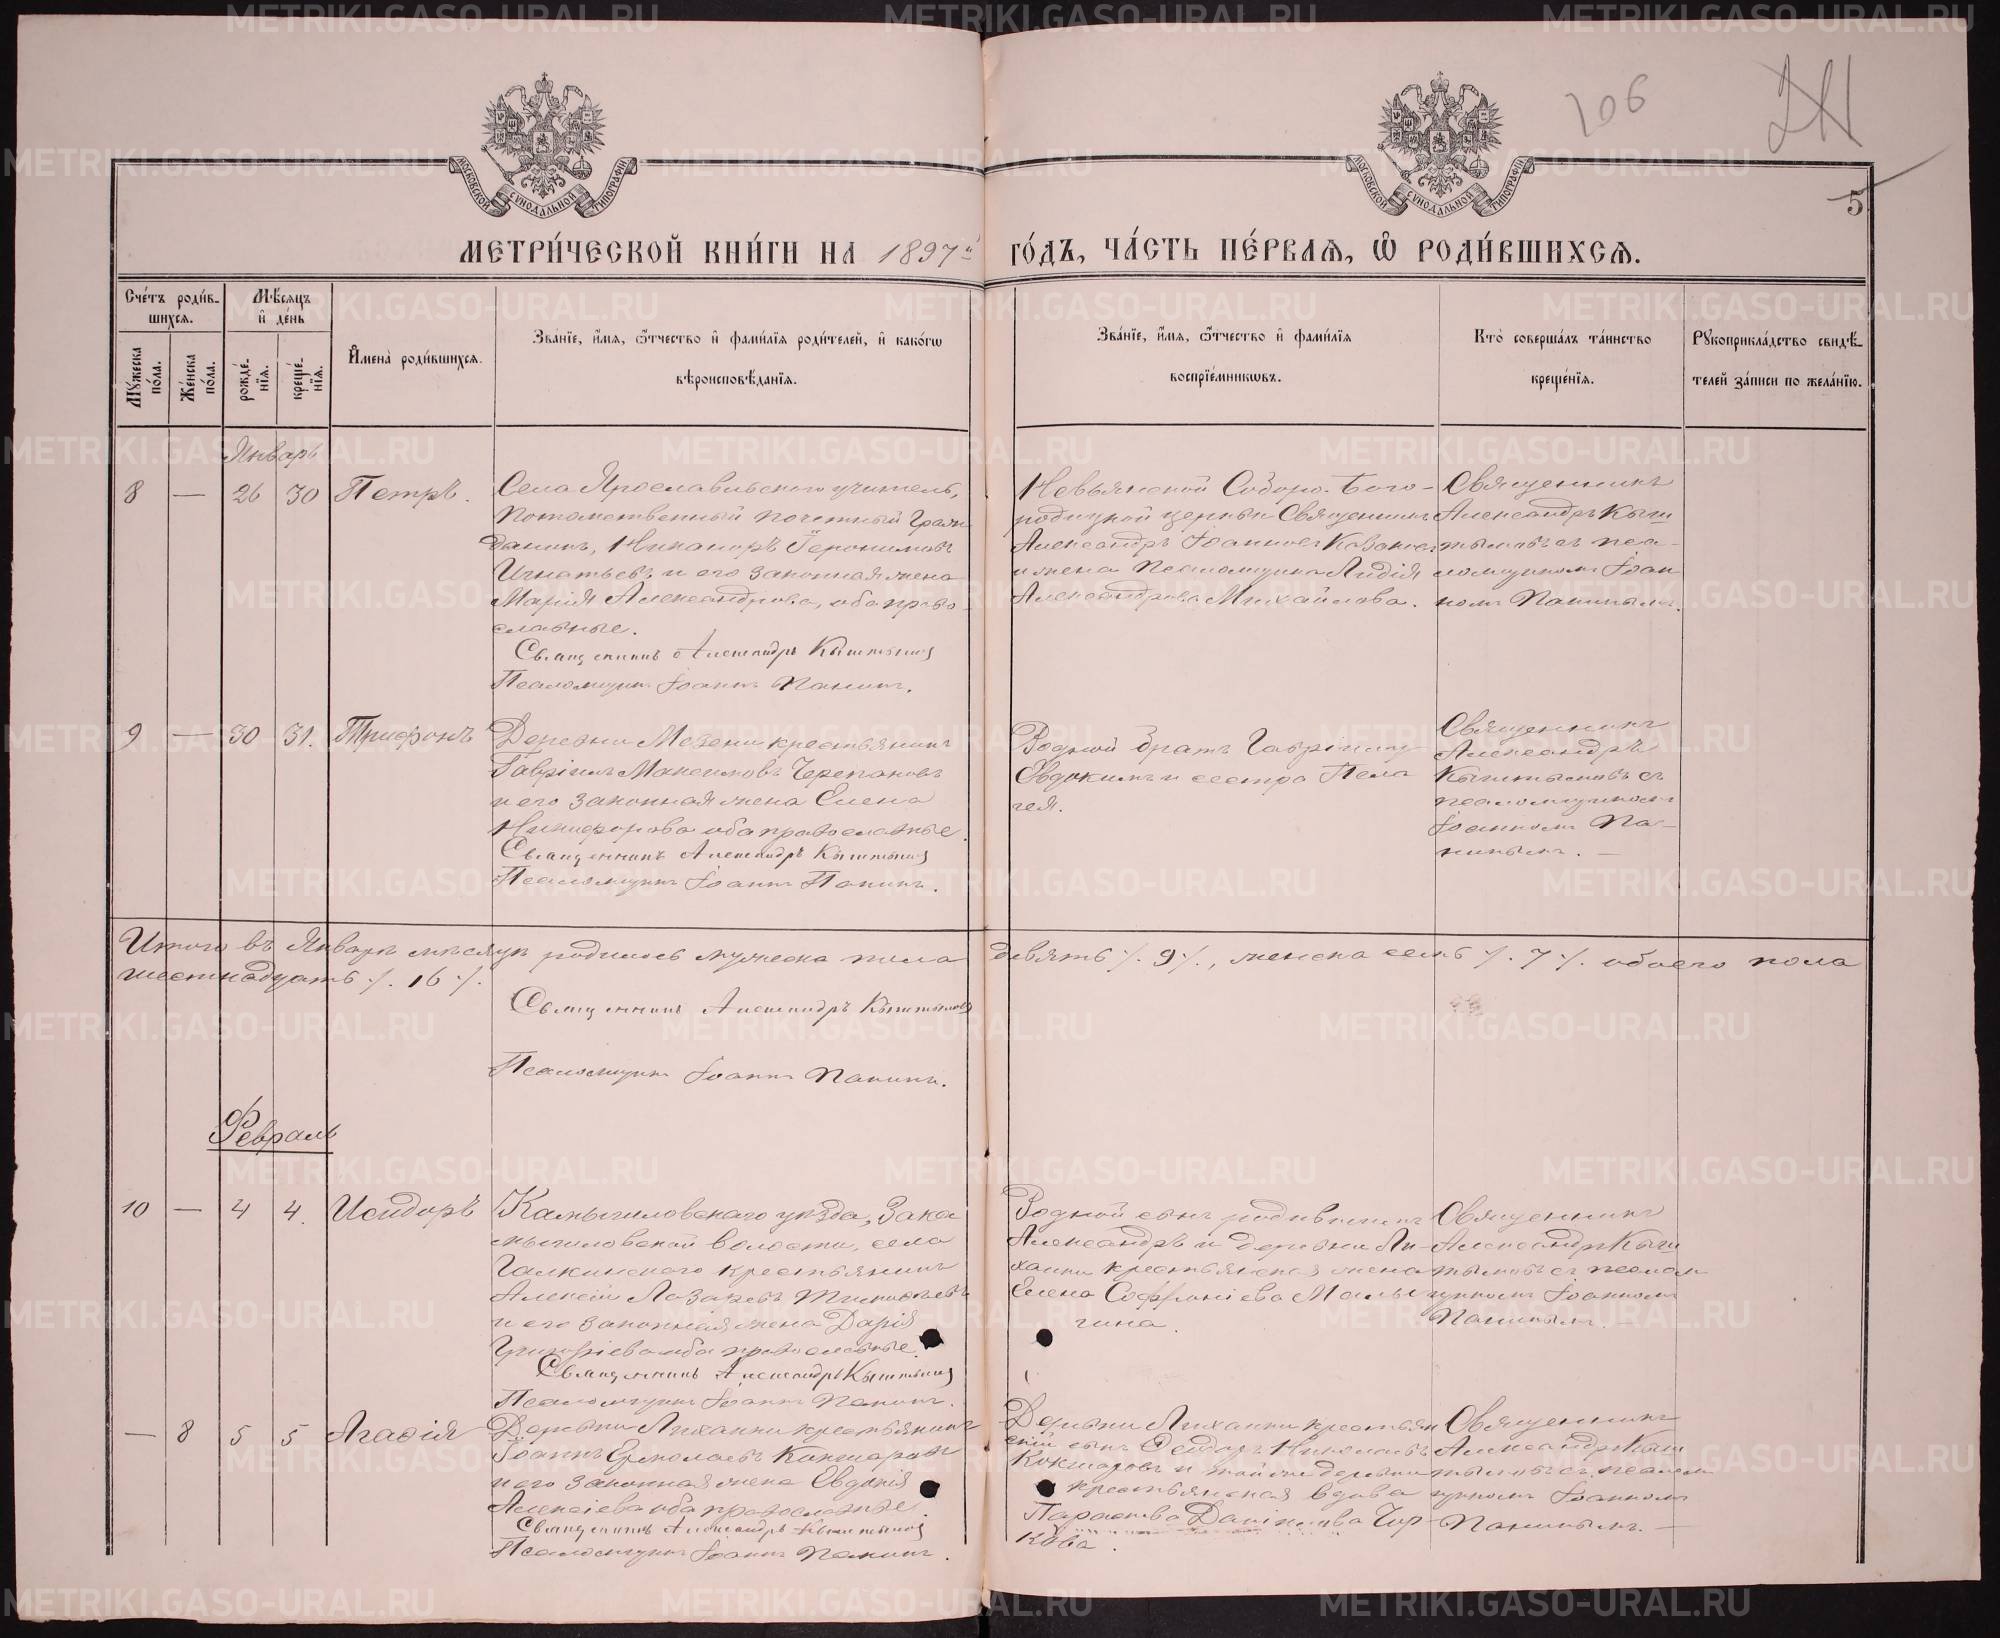 106
24
5
МОСКОВСКОЙ СУНОДАЛЬНОЙ ТИПОГРАФІИ
МОСКОВСКОЙ СУНОДАЛЬНОЙ ТИПОГРАФІИ
МЕТРИ́ЧЕСКОЙ КНИ́ГИ НА 1897й ГО́ДЪ, ЧА́СТЬ ПЕ́РВАЯ, Ѽ РОДИ́ВШИХСЯ.
Сче́тъ роди́в-
шихся.
Мѣсяцъ
и̑ де́нь
Мꙋ́жеска по́ла.
Же́нска по́ла.
рожде́-нїя.
креще́-нїя.
И҆мена̀ роди́вшихся.
Зва́нїе, и҆́мя, ѿтчество и҆ фами́лїя роди́телей, и҆ како́гѡ
вѣроисповѣ́данїя.
Зва́нїе, и҆́мя, ѿтчество и҆ фами́лїя
воспрїе́мникѡвъ.
Кто̀ соверша́лъ та́инство
креще́нїя.
Рꙋкоприкла́дство свидѣ́-
телей за́писи по жела́нїю.
Январь
8 — 26 30 Петръ.
Села Ярославльскаго учитель,
потомственный почетный граж
данинъ, Никаноръ Іеронимовъ
Игнатьевъ и его законная жена
Марія Александрова, оба право-
славные.
Священникъ Александръ Кыштымов
Псаломщикъ Іоаннъ Панинъ.
Невьянской Соборо-Бого-
родицкой церкви Священникъ
Александръ Іоанновъ
и жена псаломщика Лидія
Александрова Михайлова.
Священникъ
Александръ Кыш
тымовъ съ пса-
ломщикомъ Іоан
номъ Панинымъ.
9 — 30 31. Трифонъ
Деревни Мезени крестьянинъ
Гавріилъ Максимовъ Черепановъ
и его законная жена Елена
Никифорова оба православные.
Священникъ Александръ Кыштымов
Псаломщикъ Іоаннъ Панинъ.
Родной братъ Гавріилу
Евдокимъ и сестра Пела
гея.
Священникъ
Александръ
Кыштымовъ съ
псаломщикомъ
Іоанномъ Па-
нинымъ. —
Итого въ Январѣ мѣсяцѣ родилось мужеска пола девять /. 9 /., женска семь /. 7 /. обоего пола
шестнадцать /. 16 /.
Священникъ Александръ Кыштымовъ
Псаломщикъ Іоаннъ Панинъ.
Февраль
10 — 4 4. Исидоръ
Камышловскаго уѣзда, Зака
мышловской волости, села
Галкинскаго крестьянинъ
Алексій Лазаревъ
и его законная жена Дарія
Григоріева оба православные.
Священникъ Александръ Кыштымов
Псаломщикъ Іоаннъ Панинъ.
Родной сынъ родившихъ
Александръ и деревни Ли-
ханки крестьянская жена
Елена Софроніева Малы
гина.
Священникъ
Александръ Кыш
тымовъ съ псалом
щикомъ Іоанномъ
Панинымъ. —
— 8 5 5 Агаѳія
Деревни Лиханки крестьянинъ
Іоаннъ Ермолаевъ Кокшаровъ
и его законная жена Евдокія
Алексіева оба православные.
Священникъ Александръ Кыштымов
Псаломщикъ Іоаннъ Панинъ.
Деревни Лиханки крестьян
скій сынъ Ѳеодоръ Николаевъ
Кокшаровъ и той же деревни
крестьянская вдова
Параскева Даніилова
кова.
Священникъ
Александръ Кыш
тымовъ съ псалом
щикомъ Іоанномъ
Панинымъ. —
METRIKI.GASO-URAL.RU